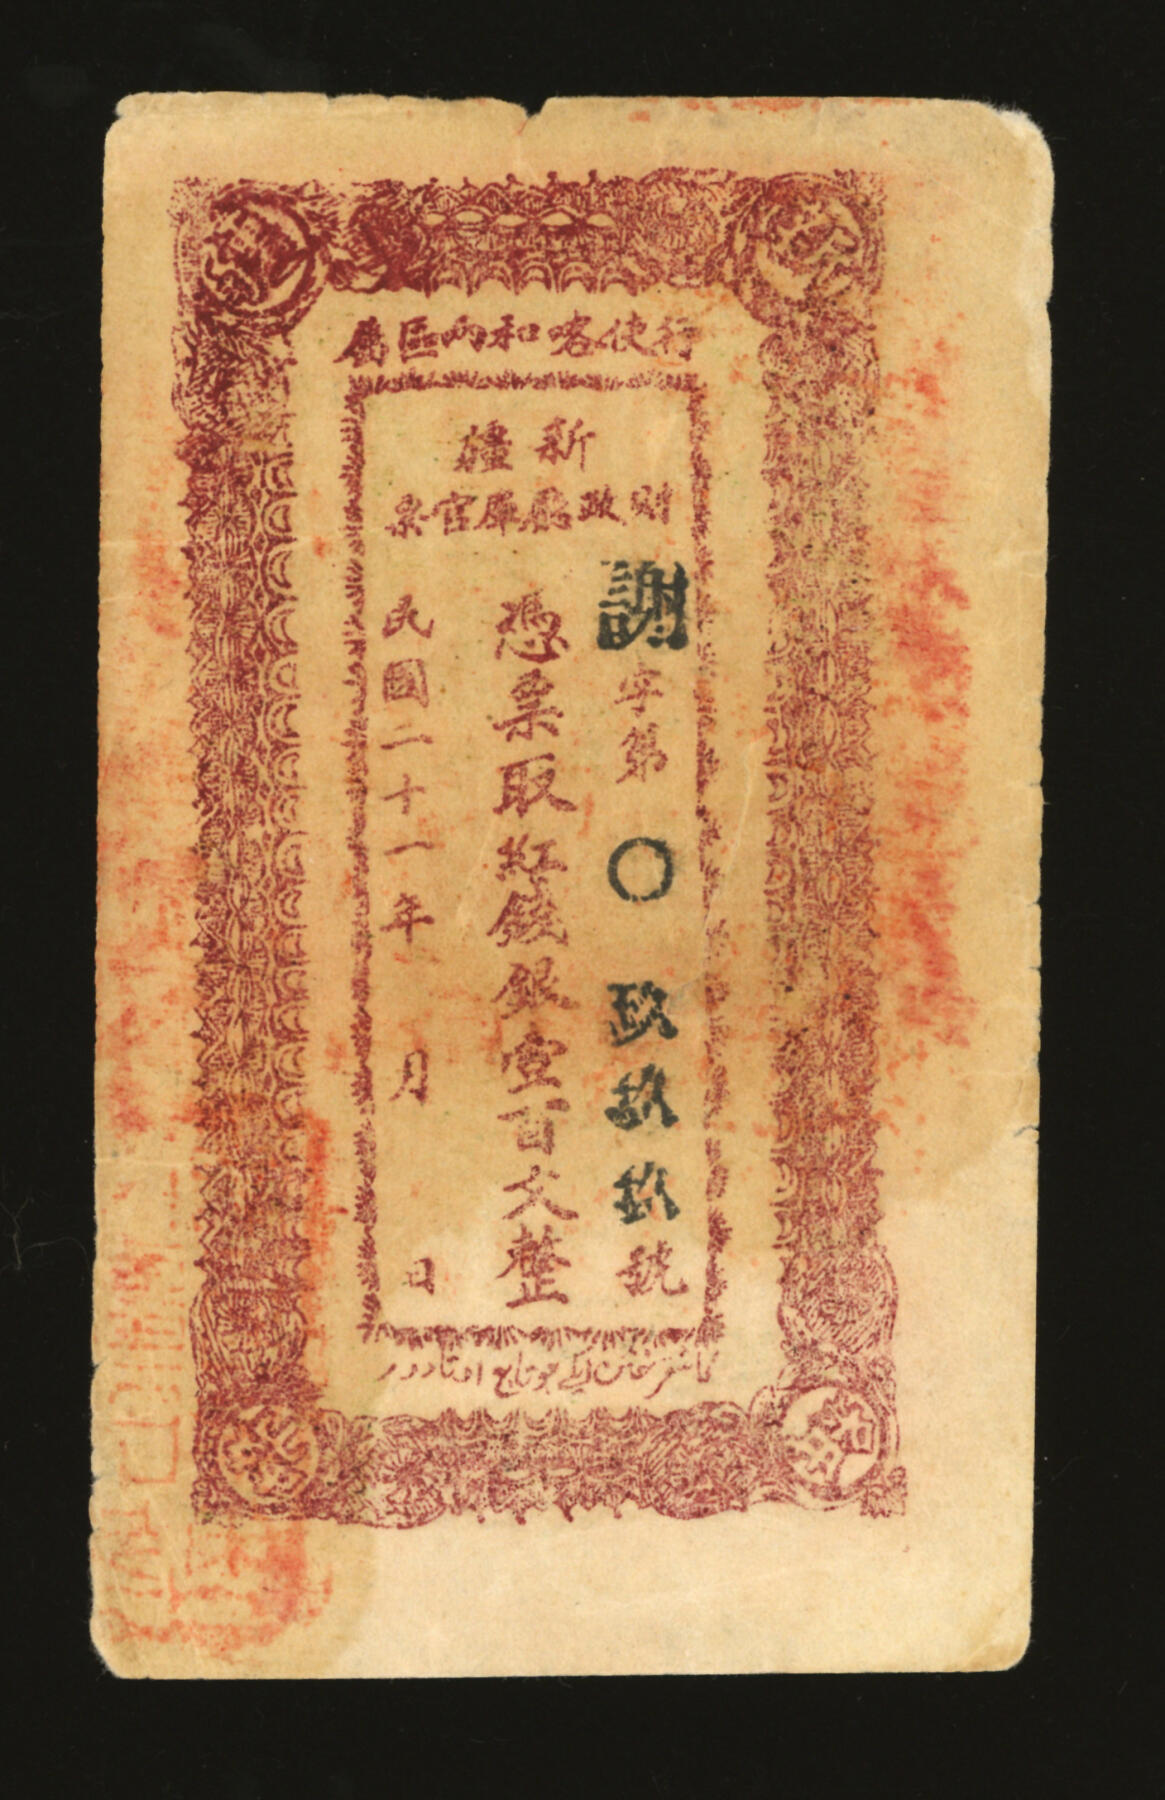 行使喀和兩區屬
新疆
財政廳庫官票
謝字第〇玖玖玖號
憑票取紅錢銀壹百文整
民國二十一年 月 日